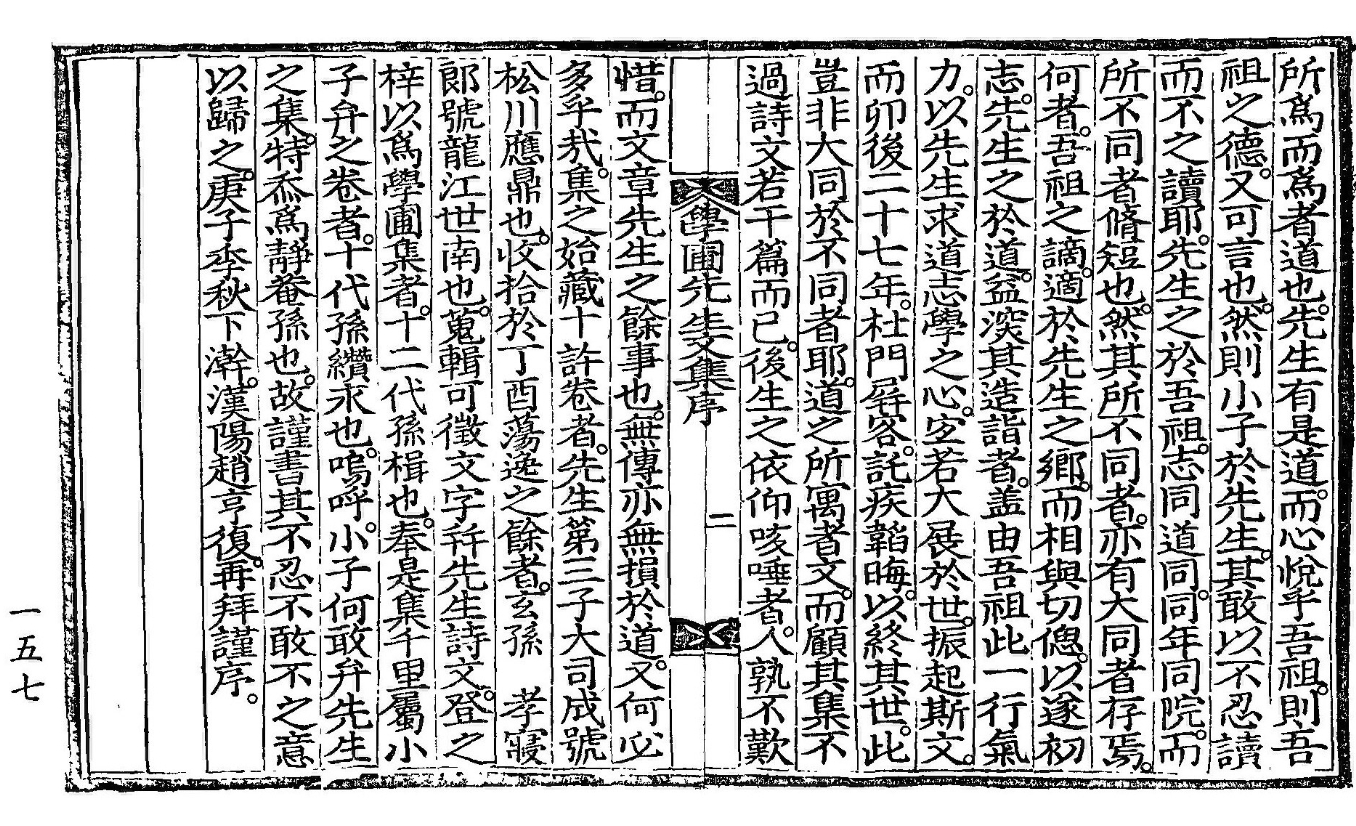 所爲而爲者道也。先生有是道而。心悅乎吾祖。則吾
祖之德。又可言也。然則小子於先生。其敢以不忍讀
而不之讀耶。先生之於吾祖。志同道同。同年同院。而
所不同者脩短也。然其所不同者。亦有大同者存焉。
何者。吾祖之謫。適於先生之鄕。而相與切偲。以遂初
志。先生之於道。益深其造詣者。盖由吾祖此一行氣
力。以先生求道志學之心。宜若大展於世。振起斯文。
而卯後二十七年。杜門屛客。託疾韜晦。以終其世。此
豈非大同於不同者耶。道之所寓者文。而顧其集不
過詩文若干篇而已。後生之依仰咳唾者。人孰不歎
學圃先生文集序 二
惜。而文章先生之餘事也。無傳亦無損於道。又何必
多乎㦲。集之始藏十許卷者。先生第三子大司成號
松川應鼎也。收拾於丁酉蕩逸之餘者。玄孫 孝寢
郞號龍江世南也。蒐輯可徵文字幷先生詩文。登之
梓以爲學圃集者。十二代孫楫也。奉是集千里屬小
子弁之卷者。十代孫纘永也。嗚呼。小子何敢弁先生
之集。特忝爲靜菴孫也。故謹書其不忍不敢不之意
以歸之。庚子季秋下澣。漢陽趙亨復。再拜謹序。
一五七